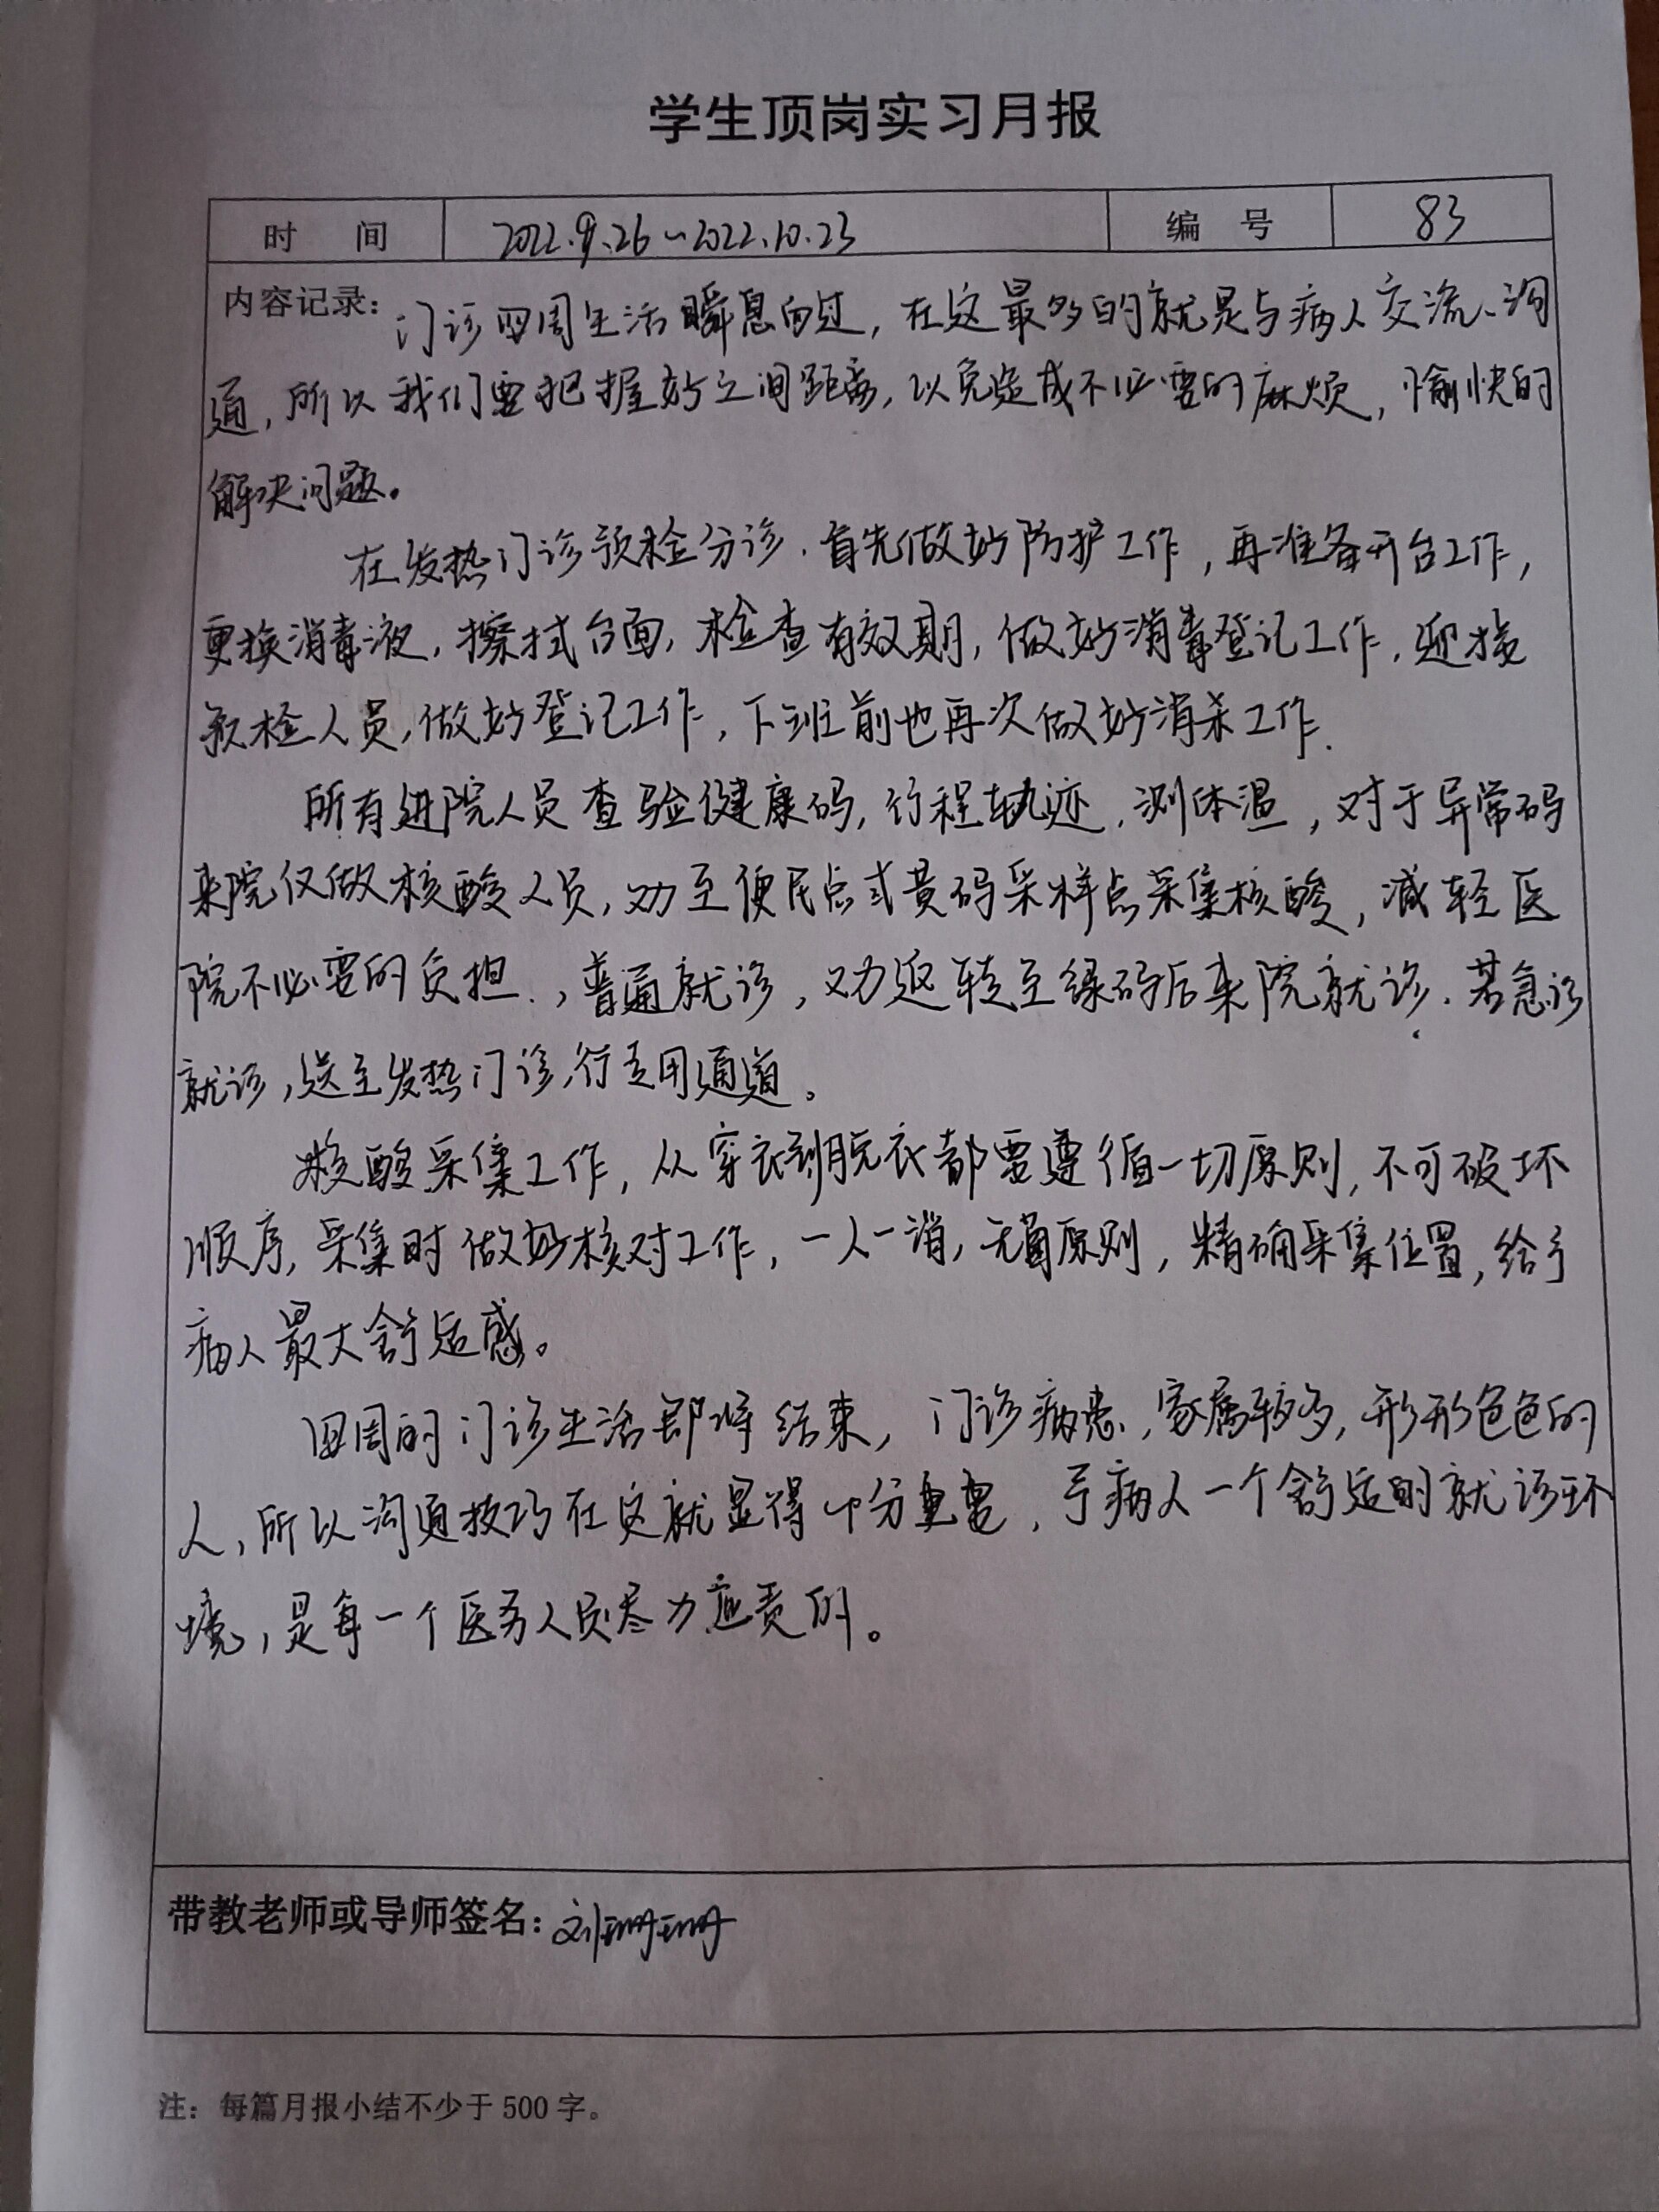 学生顶岗实习月报
时 间 2022.9.26~2022.10.23 编 号 83
内容记录：门诊四周生活瞬息而过，在这最多的就是与病人交流、沟
通，所以我们要把握好之间距离，以免造成不必要的麻烦，愉快的
解决问题。
在发热门诊预检分诊．首先做好防护工作，再准备开台工作，
更换消毒液，擦拭台面，检查有效期，做好消毒登记工作，迎接
预检人员，做好登记工作，下班前也再次做好消杀工作．
所有进院人员查验健康码，行程轨迹，测体温，对于异常码
来院仅做核酸人员，劝至便民点或黄码采样点采集核酸，减轻医
院不必要的负担．，普通就诊，劝返转至绿码后来院就诊．若急诊
就诊，送至发热门诊，行专用通道。
核酸采集工作，从穿衣到脱衣都要遵循一切原则，不可破坏
顺序，采集时做好核对工作，一人一消，无菌原则，精确采集位置，给予
病人最大舒适感。
四周的门诊生活即将结束，门诊病患，家属较多，形形色色的
人，所以沟通技巧在这就显得十分重要，予病人一个舒适的就诊环
境，是每一个医务人员尽力应责的。
带教老师或导师签名：刘
注：每篇月报小结不少于 500 字。